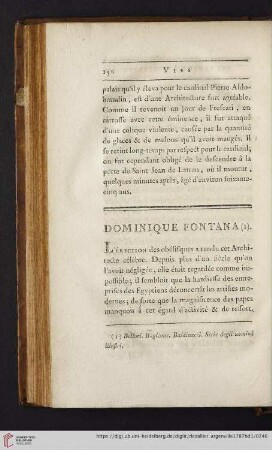 Vies
palais qu'il y éleva pour le cardinal Pierre Aldo-
brandin, est d'une Architecture fort agréable.
Comme il revenoit un jour de Frescati, en
carrosse avec cette éminence, il fut attaqué
d'une colique violente, causée par la quantité
de glaces & de melons qu'il avoit mangés. Il
se retint long-temps par respect pour le cardinal;
on fut cependant obligé de le descendre à la
porte de Saint Jean de Latran, où il mourut,
quelques minutes après, âgé d'environ soixante-
cinq ans.
DOMINIQUE FONTANA (1).
L'érection des obélisques a rendu cet Archi-
tecte célèbre. Depuis plus d'un siècle qu'on
l'avoit négligée, elle étoit regardée comme im-
possible; il sembloit que la hardiesse des entre-
prises des Egyptiens déconcertât les artistes mo-
dernes; de sorte que la magnificence des papes
manquoit à cet égard d'activité & de ressort,
(1) Bellori, Baglione, Baldinucci. Serie degli uomini
illustri.